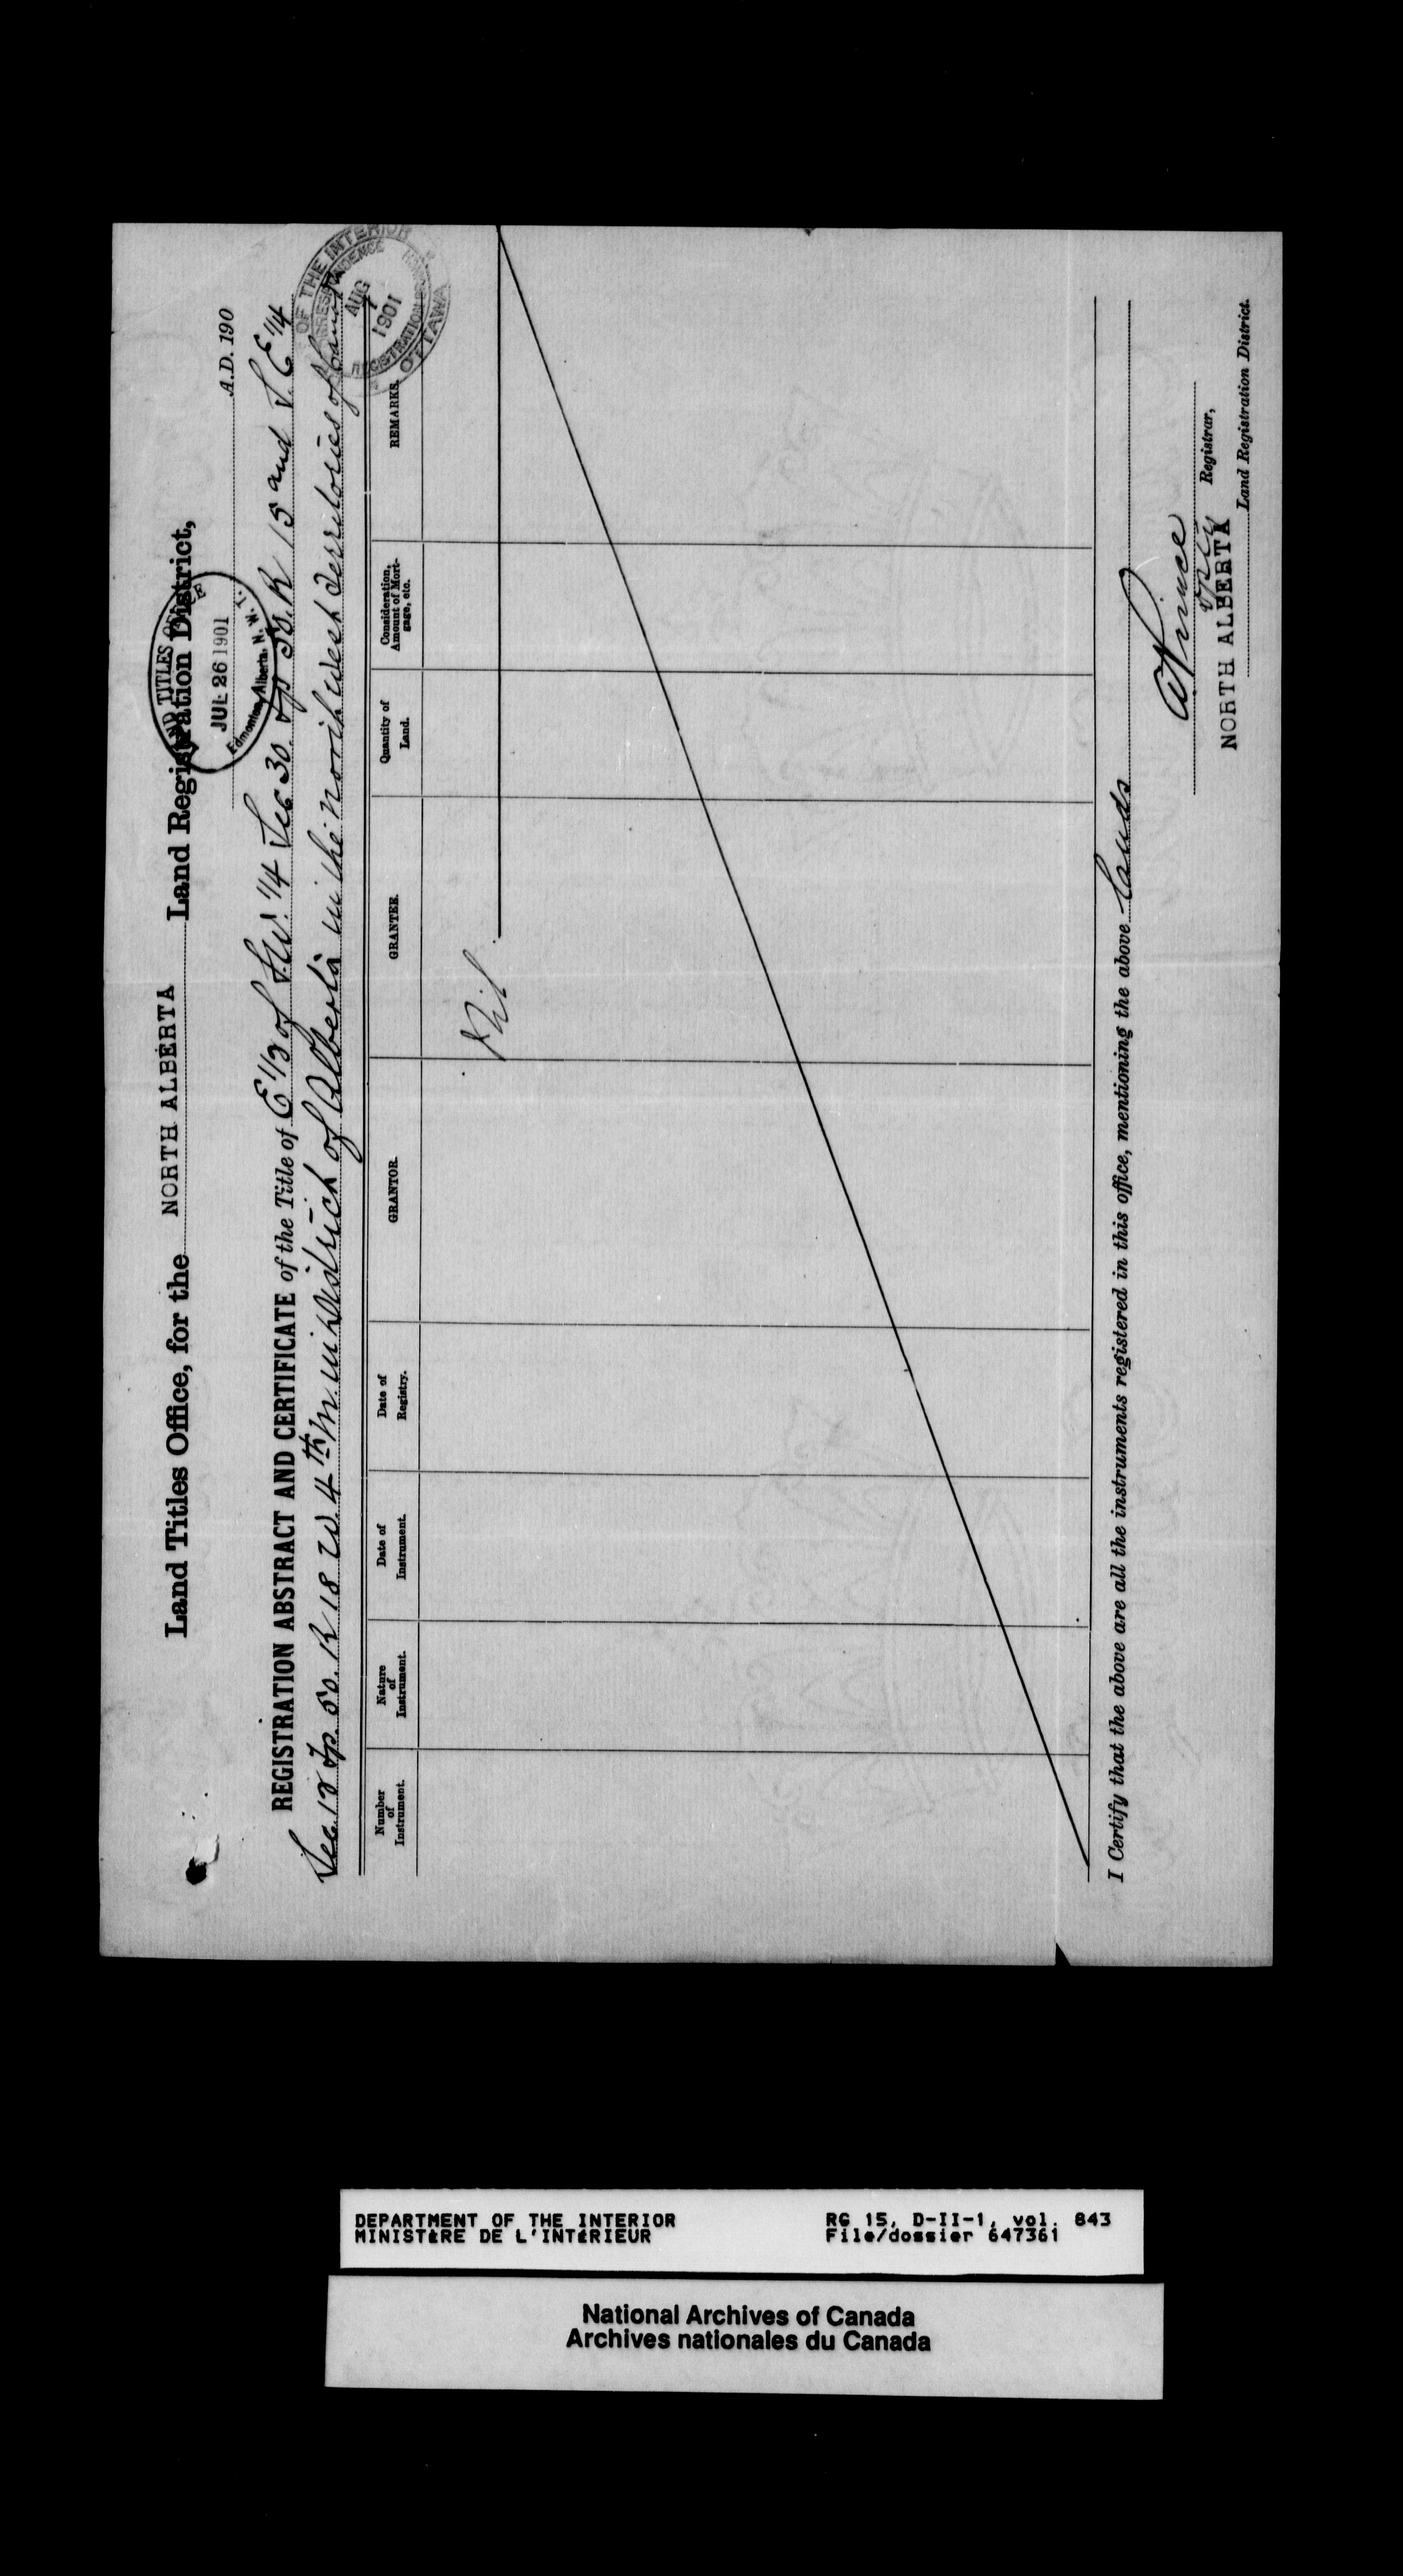 Land Titles Office, for the NORTH ALBERTA Land Registration District,
LAND TITLES OFFICE
JUL 26 1901
Edmonton, Alberta, N. W. T.
A.D. 190
REGISTRATION ABSTRACT AND CERTIFICATE of the Title of E 1/2 of S.W. 1/4 Sec 30. Tp 53. R 15 and S. E 1/4
Sec. 12 Tp. 50. R 18 W. 4th M. in District of Alberta in the North West Territories of Canada
OF THE INTERIOR
CORRESPONDENCE
AUG
7
1901
REGISTRATION
OTTAWA
Number of Instrument.
Nature of Instrument.
Date of Instrument.
Date of Registry.
GRANTOR.
GRANTEE.
Quantity of Land.
Consideration, Amount of Mortgage, etc.
REMARKS.
Nil
I Certify that the above are all the instruments registered in this office, mentioning the above Lands
A Prince
Dpty Registrar,
NORTH ALBERTA
Land Registration District.
DEPARTMENT OF THE INTERIOR
MINISTÈRE DE L'INTÉRIEUR
RG 15, D-II-1, vol. 843
File/dossier 647361
National Archives of Canada
Archives nationales du Canada